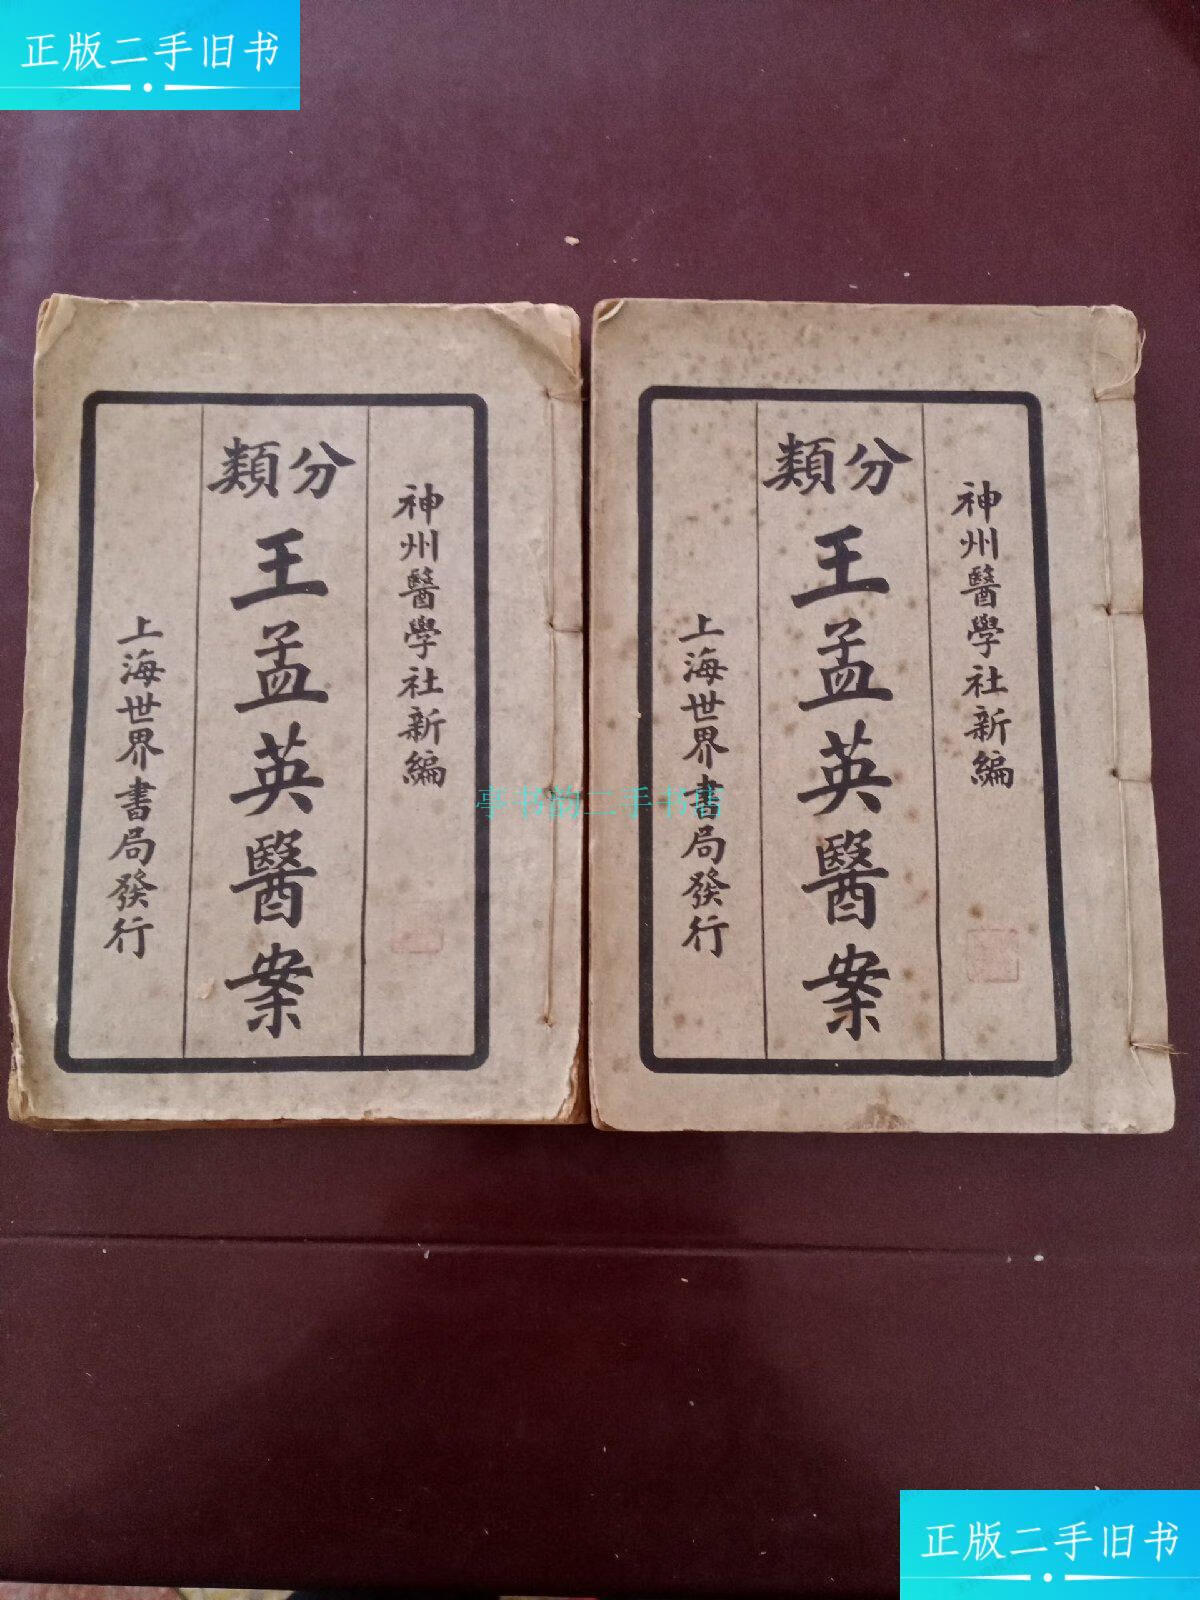 正版二手旧书
分類
王孟英醫案
神州醫學社新編
上海世界書局發行
分類
王孟英醫案
神州醫學社新編
上海世界書局發行
亭书韵二手书店
正版二手旧书